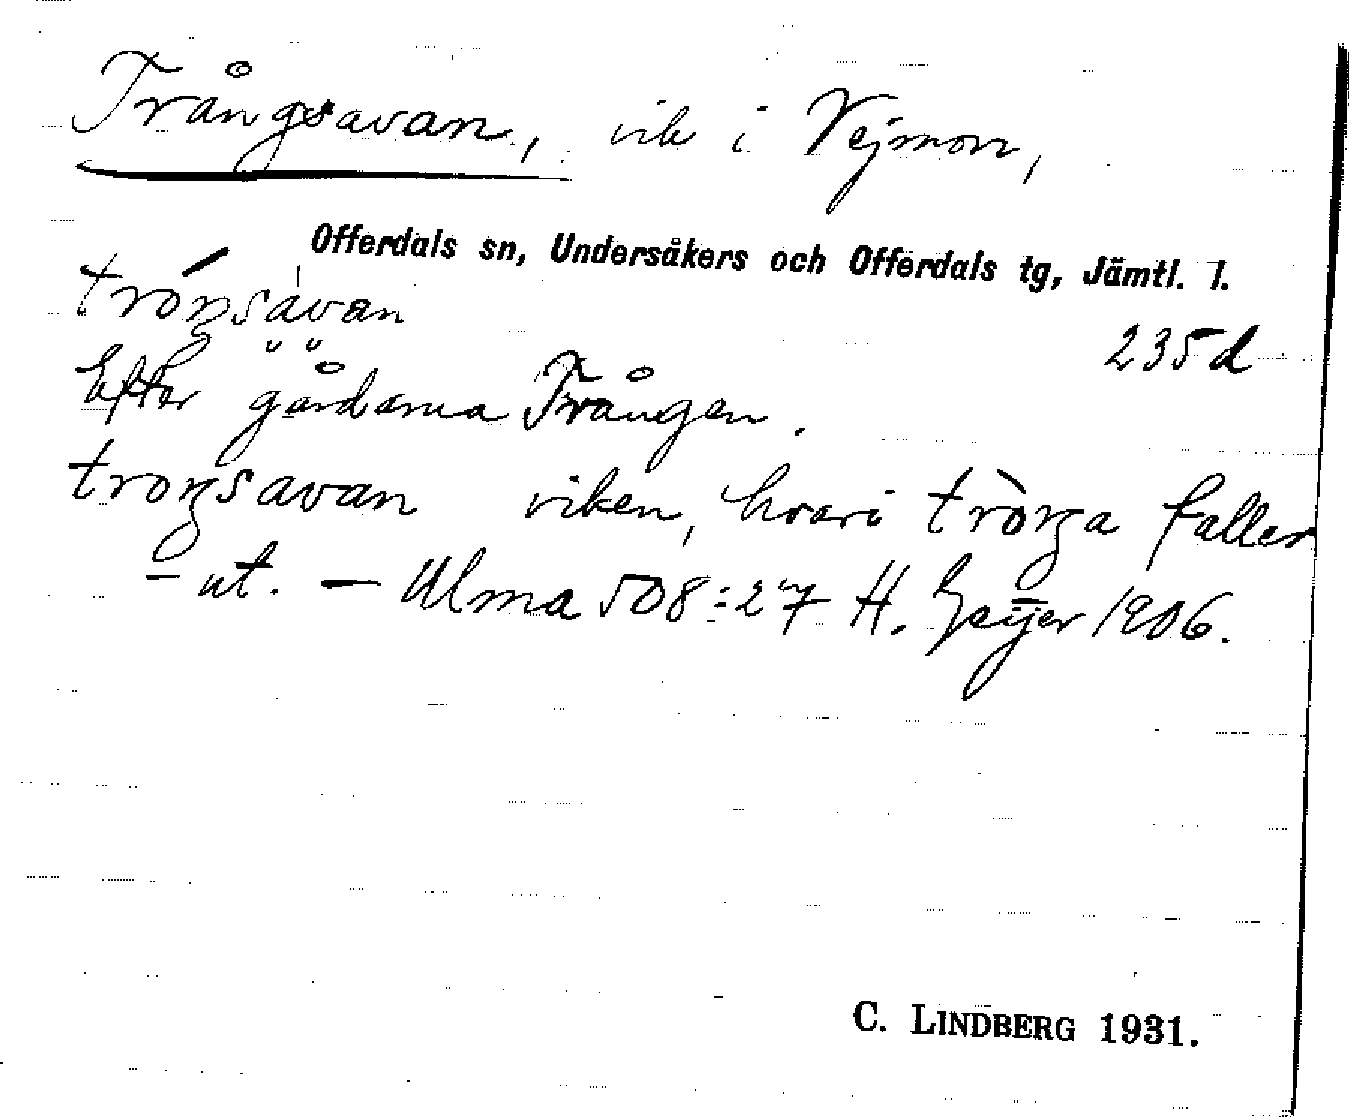 Trångsavan, vik i Vejmon,
Offerdals sn, Undersåkers och Offerdals tg, Jämtl. l.
tróŋsàvan
235d
Efter gårdarna Trången.
troŋsavan viken, hvari tròŋa faller
ut. — Ulma 508:27 H. Geijer 1906.
C. LINDBERG 1931.